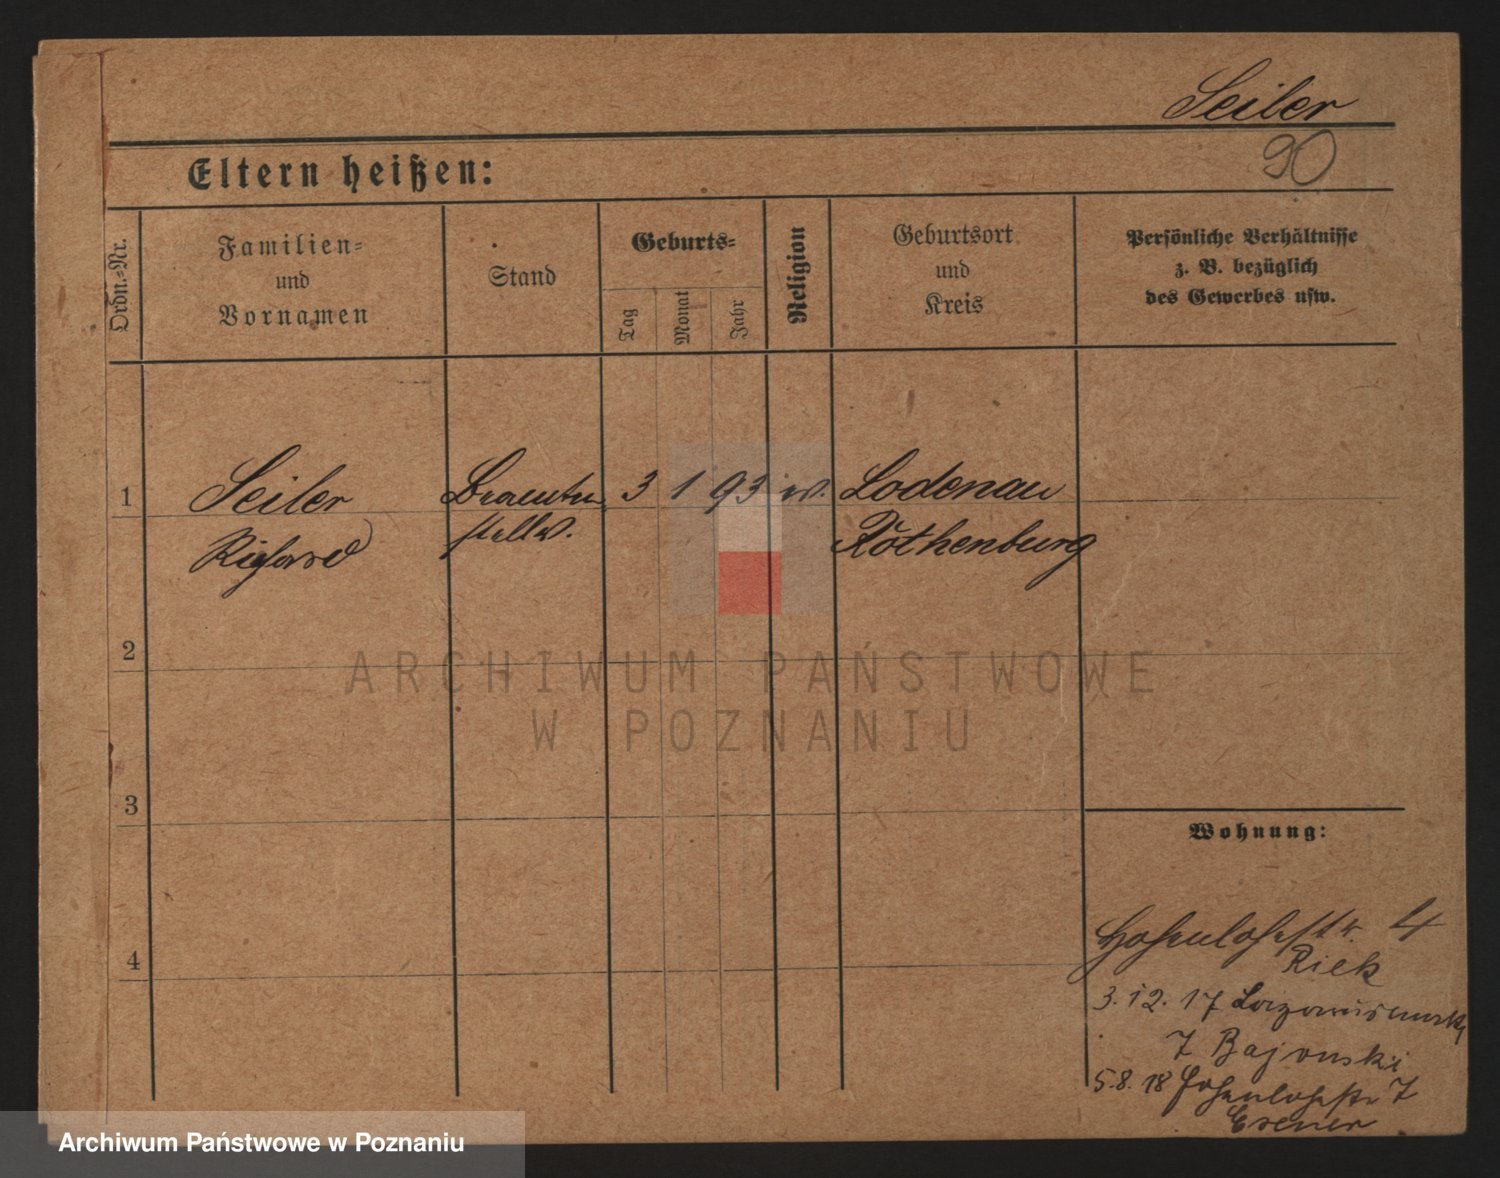 Seiler
90
Eltern heißen:
Ordn.-Nr.
Familien-
und
Vornamen
Stand
Geburts-
Tag
Monat
Jahr
Religion
Geburtsort
und
Kreis
Persönliche Verhältnisse
z. B. bezüglich
des Gewerbes usw.
1
Seiler
3 1 93
Lodenau
Richard
stellv.
Rothenburg
2
ARCHIWUM PAŃSTWOWE
W POZNANIU
3
Wohnung:
4
Hohenlohestr. 4
Riek
3.12.17
7 Bajonski
5.8.18 Hohenlohestr 7
Exner
Archiwum Państwowe w Poznaniu